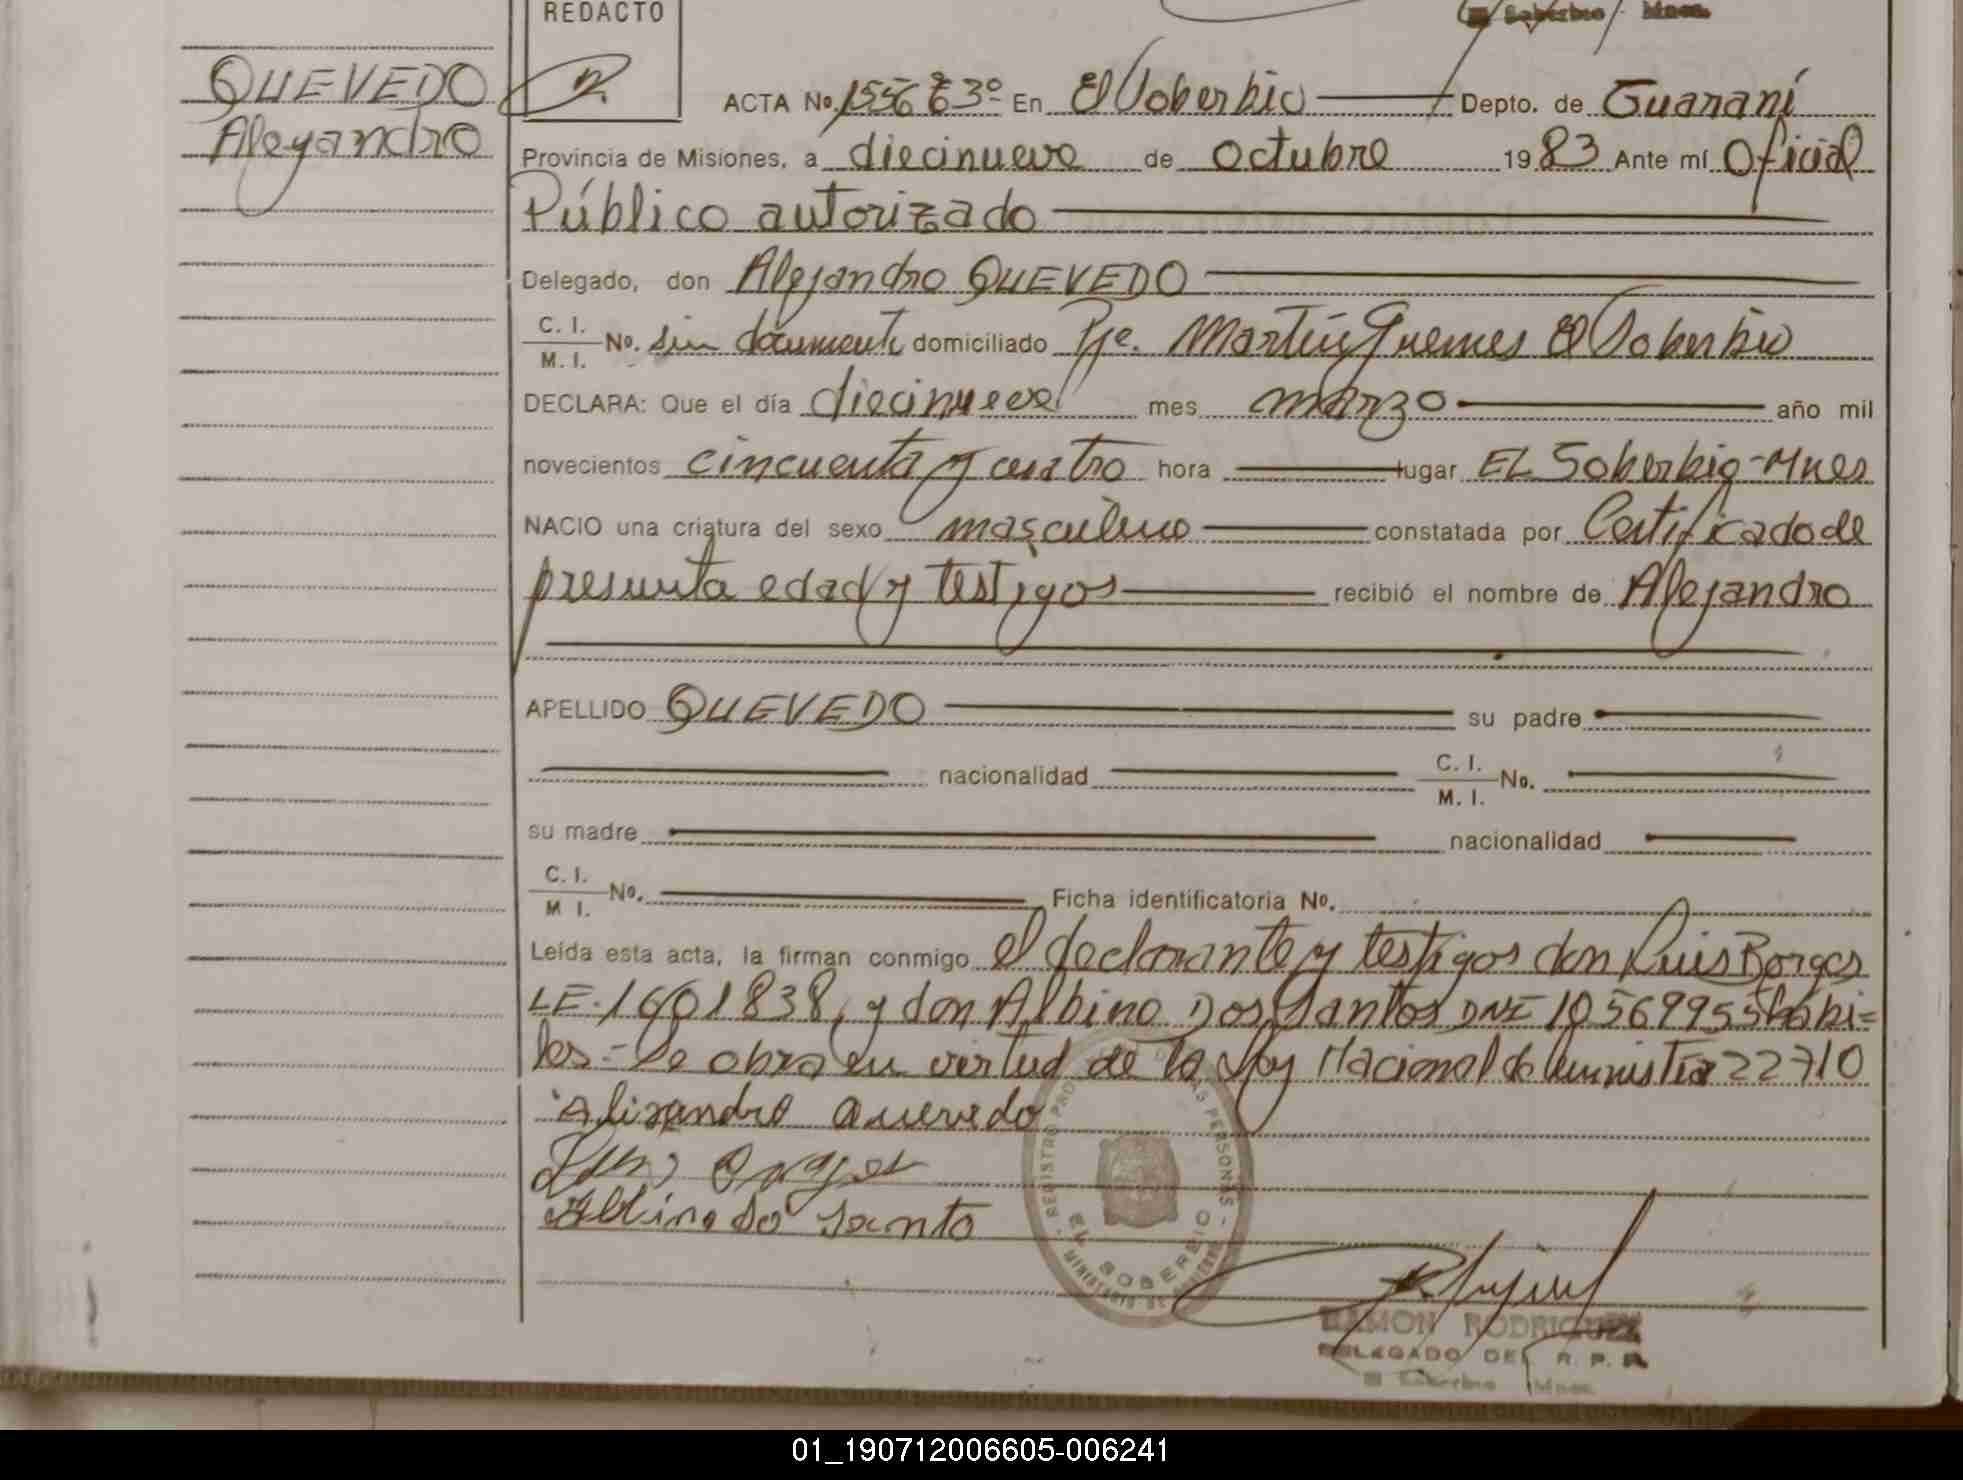 REDACTO
Soberbio Mnes.
QUEVEDO
Alejandro
ACTA No. 1556 T 3º En El Soberbio Depto. de Guaraní
Provincia de Misiones, a diecinueve de octubre 1983 Ante mí Oficial
Público autorizado
Delegado, don Alejandro QUEVEDO
C. I.
M. I. No. sin documento domiciliado Pje. Martín Guemes El Soberbio
DECLARA: Que el día diecinueve mes marzo año mil
novecientos cincuenta y cuatro hora lugar EL Soberbio-Mnes
NACIO una criatura del sexo masculino constatada por Certificado de
presunta edad y testigos recibió el nombre de Alejandro
APELLIDO QUEVEDO su padre
nacionalidad C. I.
M. I. No.
su madre nacionalidad
C. I.
M I. No. Ficha identificatoria No.
Leída esta acta, la firman conmigo el declarante y testigos don Luis Borges
LE. 1601838, y don Albino Dos Santos DNI 10569955 hábi=
les.- Se obra en virtud de la Ley Nacional de Amnistía 22710
Alixandro Quevedo
Albino do Santo
REGISTRO PRO DE LAS PERSONAS
EL SOBERBIO
MINISTERIO DE GOBIERNO
RAMON RODRIGUEZ
DELEGADO DEL R. P. P.
El Soberbio Mnes.
01_190712006605-006241